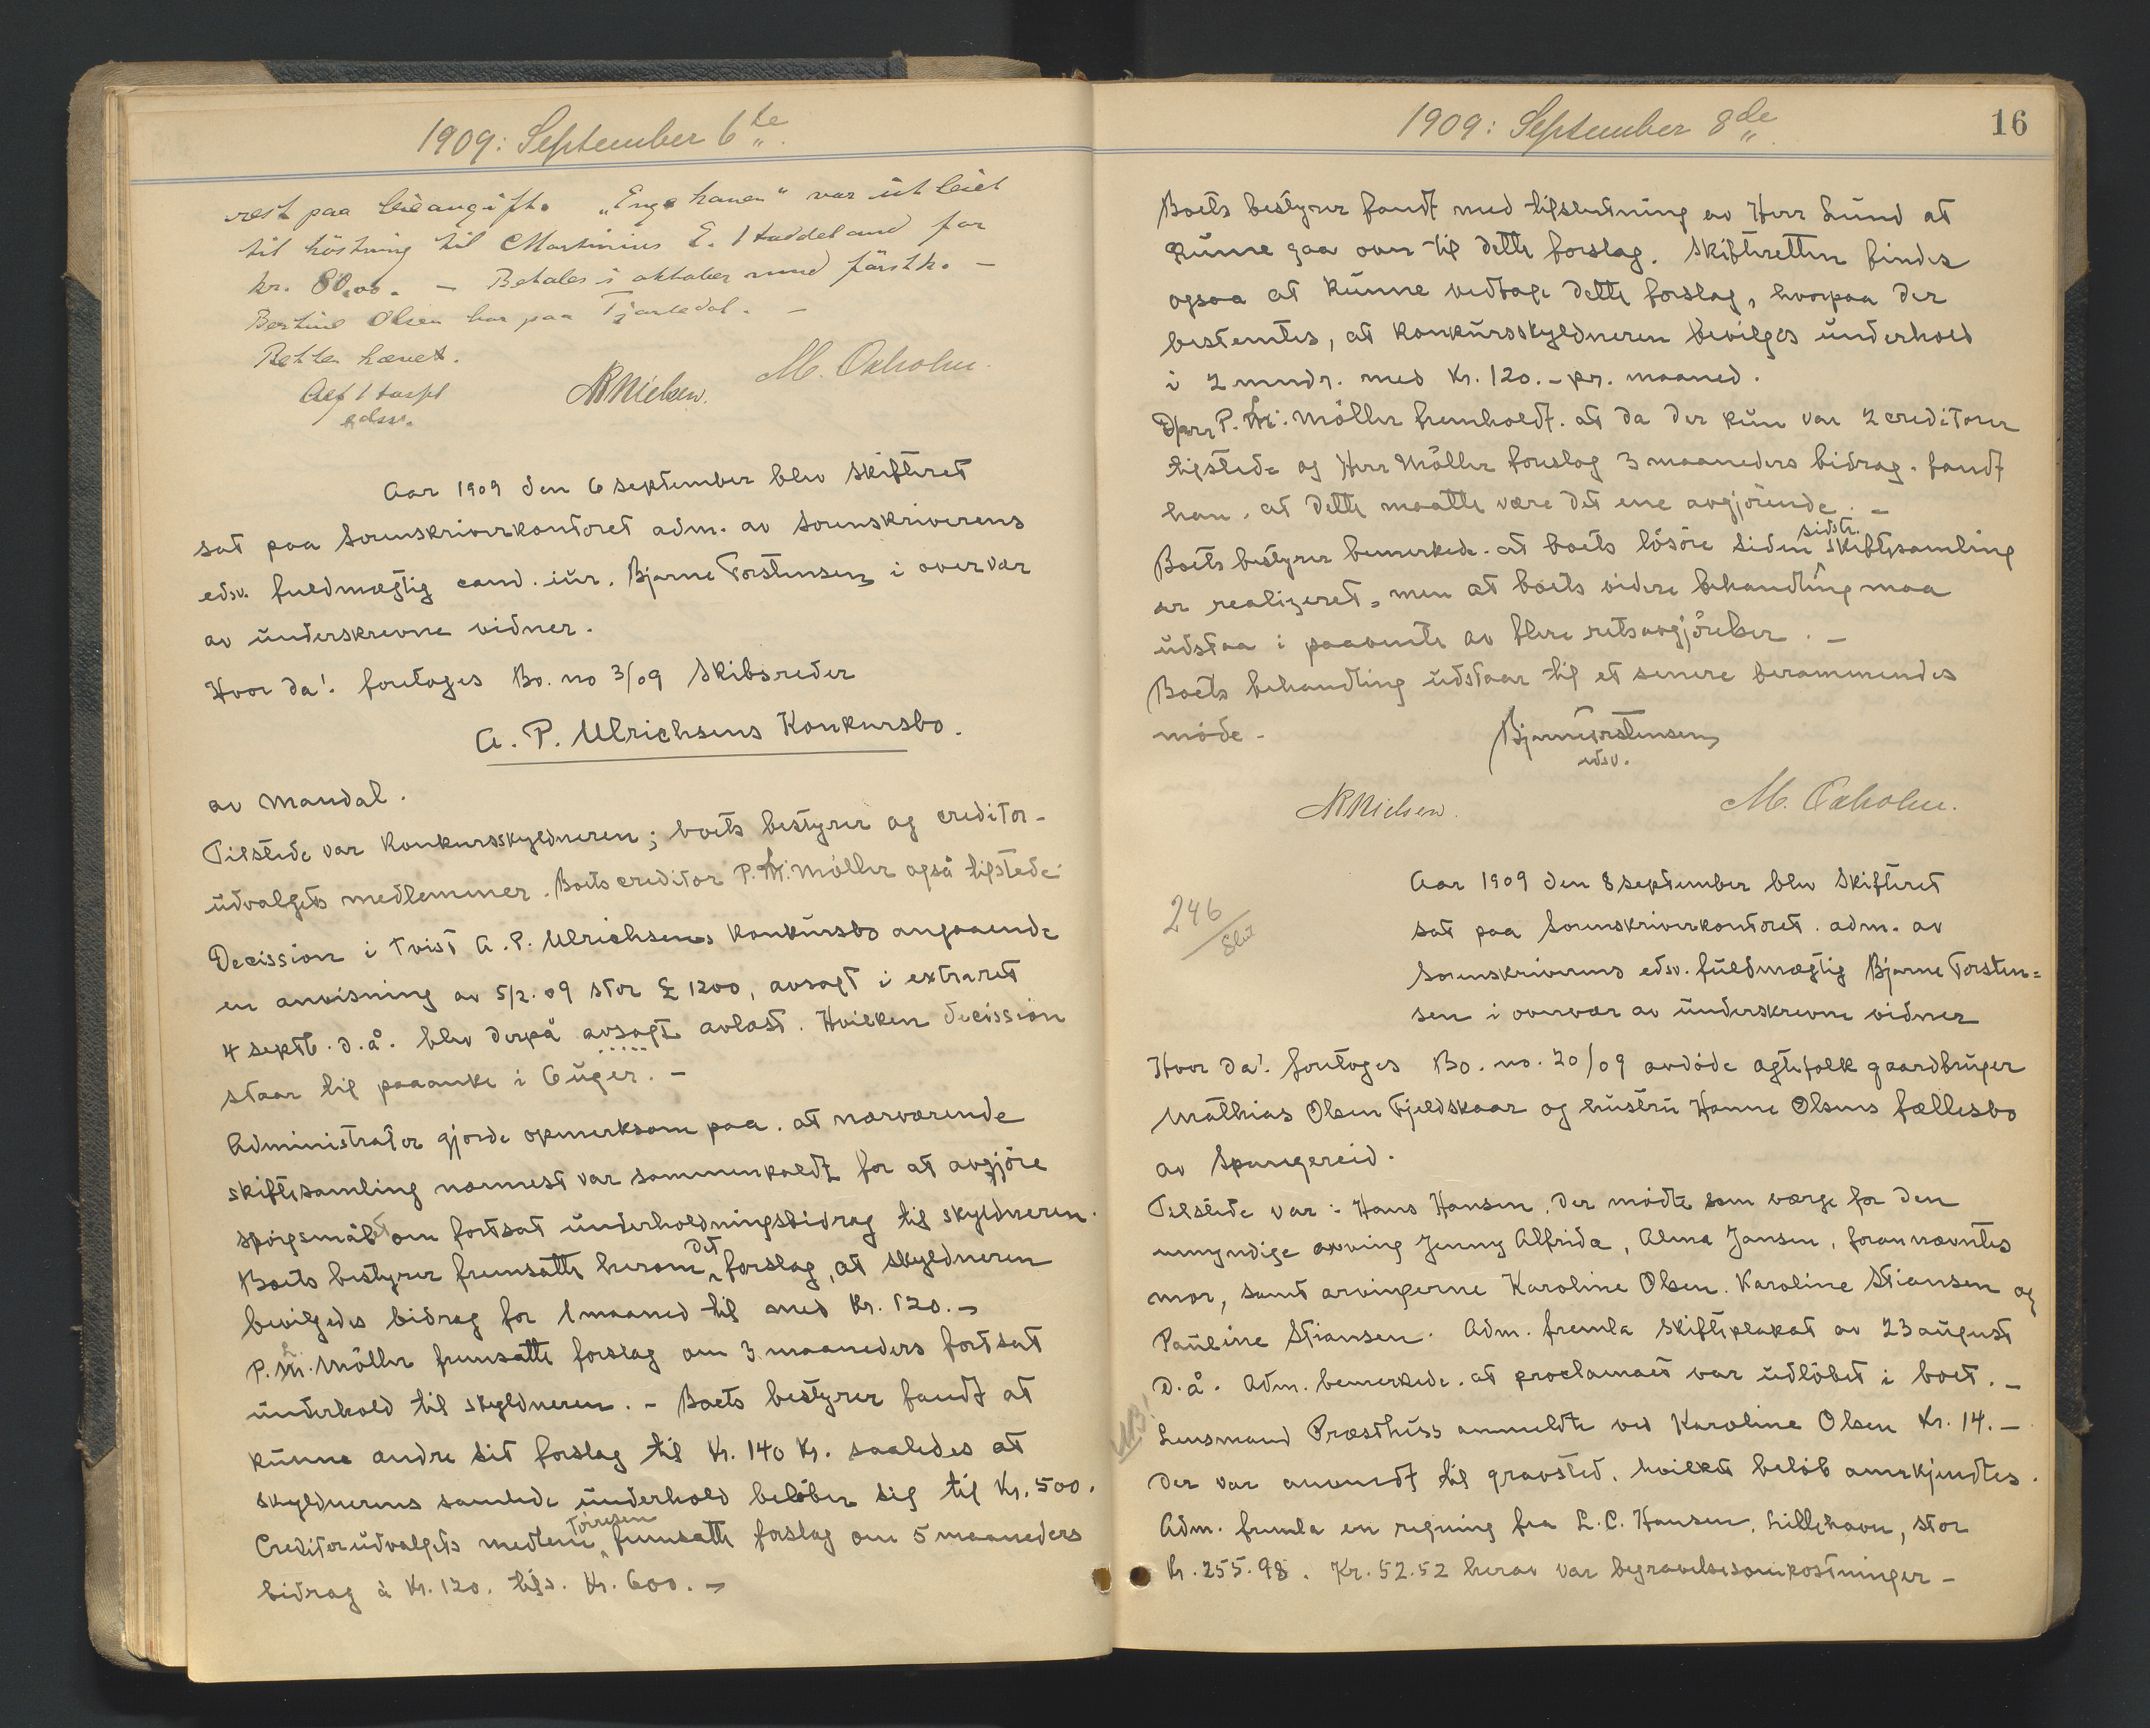 1909: September 6te
rest paa leieavgift. „Engehaven“ var utleiet
til höstning til Martinius E. Staddeland for
kr. 80.00. — Betales i oktober mnd förstk. —
Bertine Olsen har paa Tjaldal. —
Retten hævet.
Alf
edsv.
NRNielsen. M. Oxholm.
Aar 1909 den 6 september blev skifteret
sat paa sorenskriverkontoret adm. av sorenskriverens
edsv. fuldmægtig cand. iur. Bjarne Torstensen i overvær
av underskrevne vidner.
Hvor da! foretoges Bo. no 3/09 Skibsreder
A. P. Ulrichsens Konkursbo.
av Mandal.
Tilstede var konkursskyldneren; boets bestyrer og creditor-
udvalgets medlemmer. Boets creditor P. Møller også tilstede.
Decission i tvist A. P. Ulrichsens konkursbo angaaende
en anvisning av 5/2.09 stor £ 1200, avsagt i extraret
4 septb. d.å. blev derpå avsagt avlæst. Hvilken decission
staar til paaanke i 6 uger. —
Administrator gjorde opmerksom paa. at nærværende
skiftesamling nærmest var sammenkaldt for at avgjöre
spörgsmålet om fortsat underholdningsbidrag til skyldneren.
Boets bestyrer fremsatte herom det forslag, at skyldneren
bevilgedes bidrag for 1 maaned til med Kr. 120. —
P. Möller fremsatte forslag om 3 maaneders fortsat
underhold til skyldneren. — Boets bestyrer fandt at
kunne andre sit forslag til Kr. 140 Kr. saaledes at
skyldnerens samlede underhold belöber sig til Kr. 500.
Creditorudvalgets medlem Törresen fremsatte forslag om 5 maaneders
bidrag à Kr. 120. tils. Kr. 600. —
1909: September 8de
16
Boets bestyrer fandt med tilslutning av Herr Lund at
kunne gaa over til dette forslag. Skifteretten findes
ogsaa at kunne vedtage dette forslag, hvorpaa der
bestemtes, at konkursskyldneren bevilges underhold
i 2 mndr. med Kr. 120. — pr. maaned.
Herr P. Möller fremholdt. at da der kun var 2 creditorer
tilstede og Herr Möller foreslog 3 maaneders bidrag. fandt
han. at dette maatte være det ene avgjörende. —
Boets bestyrer bemerkede. at boets lösöre siden sidste skiftesamling
er realizeret, men at boets videre behandling maa
udstaa i paavente av flere retsavgjörelser. —
Boets behandling udstaar til et senere berammendes
möde.
Bjarne Torstensen
edsv.
NRNielsen. M. Oxholm.
246
Slut
Aar 1909 den 8 september blev Skifteret
sat paa sorenskriverkontoret. adm. av
Sorenskriverens edsv. fuldmægtig Bjarne Torsten=
sen i overvær av underskrevne vidner
Hvor da! foretoges Bo. no. 20/09 avdöde ægtefolk gaardbruger
Mathias Olsen Fjeldskaar og hustru Hanne Olsens fællesbo
av Spangereid.
Tilstede var: Hans Hansen, der mödte som værge for den
umyndige arving Jenny Alfrida, Alma Jansen, forannævntes
mor, samt arvingerne Karoline Olsen. Karoline Stiansen og
Pauline Stiansen. Adm. fremla skifteplakat av 23 august
d.å. Adm. bemerkede. at proclamaet var udlöbet i boet. —
NB!
Lensmand Præsthuss anmeldte ved Karoline Olsen Kr. 14. —
der var anvendt til gravsted. hvilket belöb anerkjendtes.
Adm. fremla en regning fra L.C. Hansen. Lillehavn, stor
Kr. 255.98. Kr. 52.52 herav var begravelsesomkostninger —